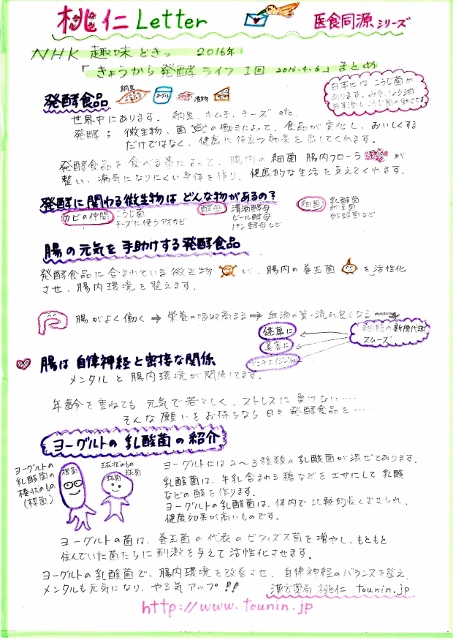 桃仁 Letter 医食同源シリーズ
NHK 趣味どきっ 2016年
「きょうから発酵ライフ 1回 2016.4.6」まとめ
発酵食品 納豆 漬物
日本にはこうじ菌が
あります。みそ、しょうゆ
世界中にあります。納豆、キムチ、チーズ etc.
発酵:微生物、菌の働きによって、食品が変化し、おいしくする
だけではなく、健康に役立つ効果を出してくれます。
発酵食品を食べる事によって、腸内の細菌 腸内フローラ が
整い、病気になりにくい身体を作り、健康的な生活を支えてくれます。
発酵に関わる微生物はどんな物があるの?
カビの仲間 こうじ菌 チーズに使うアオカビ
酵母 清酒酵母 ビール酵母 パン酵母など
細菌 乳酸菌 納豆菌 など
腸の元気を手助けする発酵食品
発酵食品に含まれている微生物 が、腸内の善玉菌 を活性化
させ、腸内環境を整えます。
腸がよく働く ⇒ 栄養の吸収 ⇒ 血液の質・流れ良くなる
細胞の新陳代謝
スムーズ
健康に
美容に
アンチエイジング
腸は自律神経と密接な関係
メンタルと腸内環境が関係してます。
年齢を重ねても元気で若々しく、ストレスに負けない‥‥
そんな願いをお持ちなら日々発酵食品を‥‥
ヨーグルトの乳酸菌の紹介
ヨーグルトの
乳酸菌の
棒状のもの
(桿菌)
球状のもの
球菌
ヨーグルトには2〜3種類の乳酸菌が混ざってあります。
乳酸菌は、牛乳含まれる糖などをエサにして乳酸
などの酸を作ります。
ヨーグルトの乳酸菌は、体内で比較的長く生きられ、
健康効果が高いものです。
ヨーグルトの菌は、善玉菌の代表のビフィズス菌を増やし、もともと
住んでいた菌たちに刺激を与えて活性化させます。
ヨーグルトの乳酸菌で、腸内環境を改善させ、自律神経のバランスを整え、
メンタルも元気になり、やる気アップ!!! 漢方薬局 桃仁 tounin.jp
http://www.tounin.jp